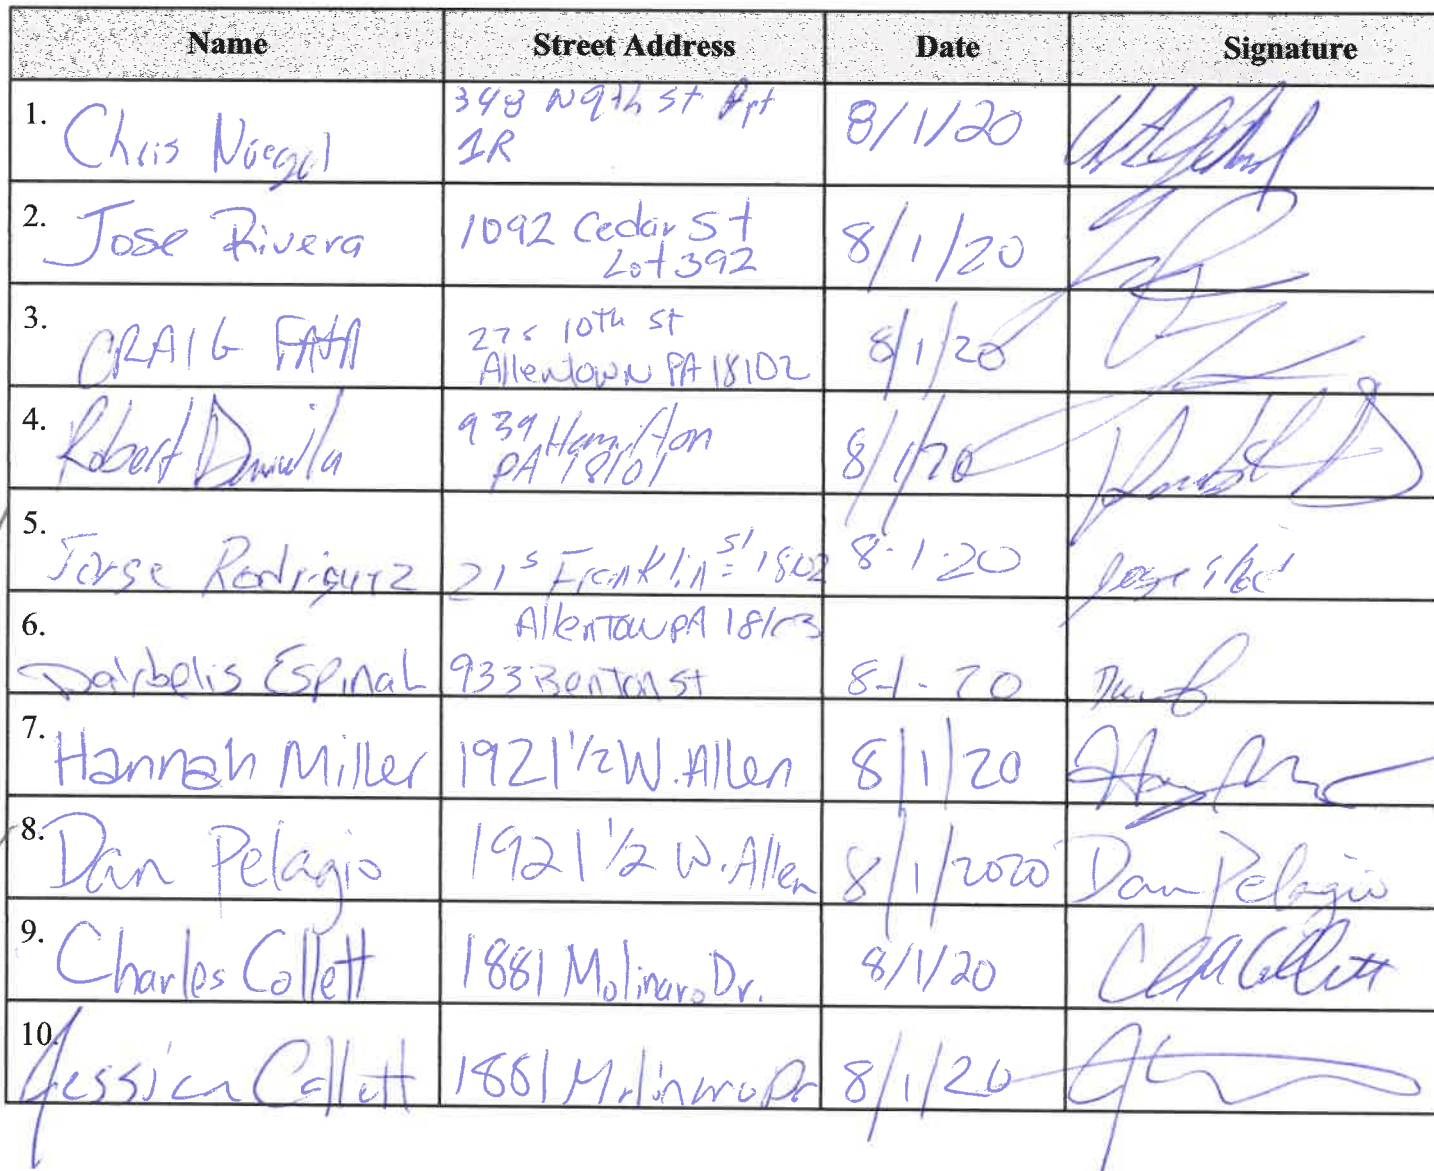 Name Street Address Date Signature
1. Chris 348 N 9th St Apt 8/1/20
1R
2. Jose Rivera 1092 Cedar St 8/1/20
Lot 392
3. CRAIG 275 10th St 8/1/20
Allentown PA 18102
4. Robert Davila 939 Hamilton 8/1/20
PA 18101
5. Jorge Rodriguez 21 S Franklin St 1802 8-1-20
6. Allentown PA 18103
Darbelis Espinal 933 Benton St 8-1-20
7. Hannah Miller 1921 1/2 W. Allen 8/1/20
8. Dan Pelagio 1921 1/2 W. Allen 8/1/2020 Dan Pelagio
9. Charles Collett 1881 Molinaro Dr. 8/1/20
10. Jessica Collett 1881 Molinaro Dr 8/1/20